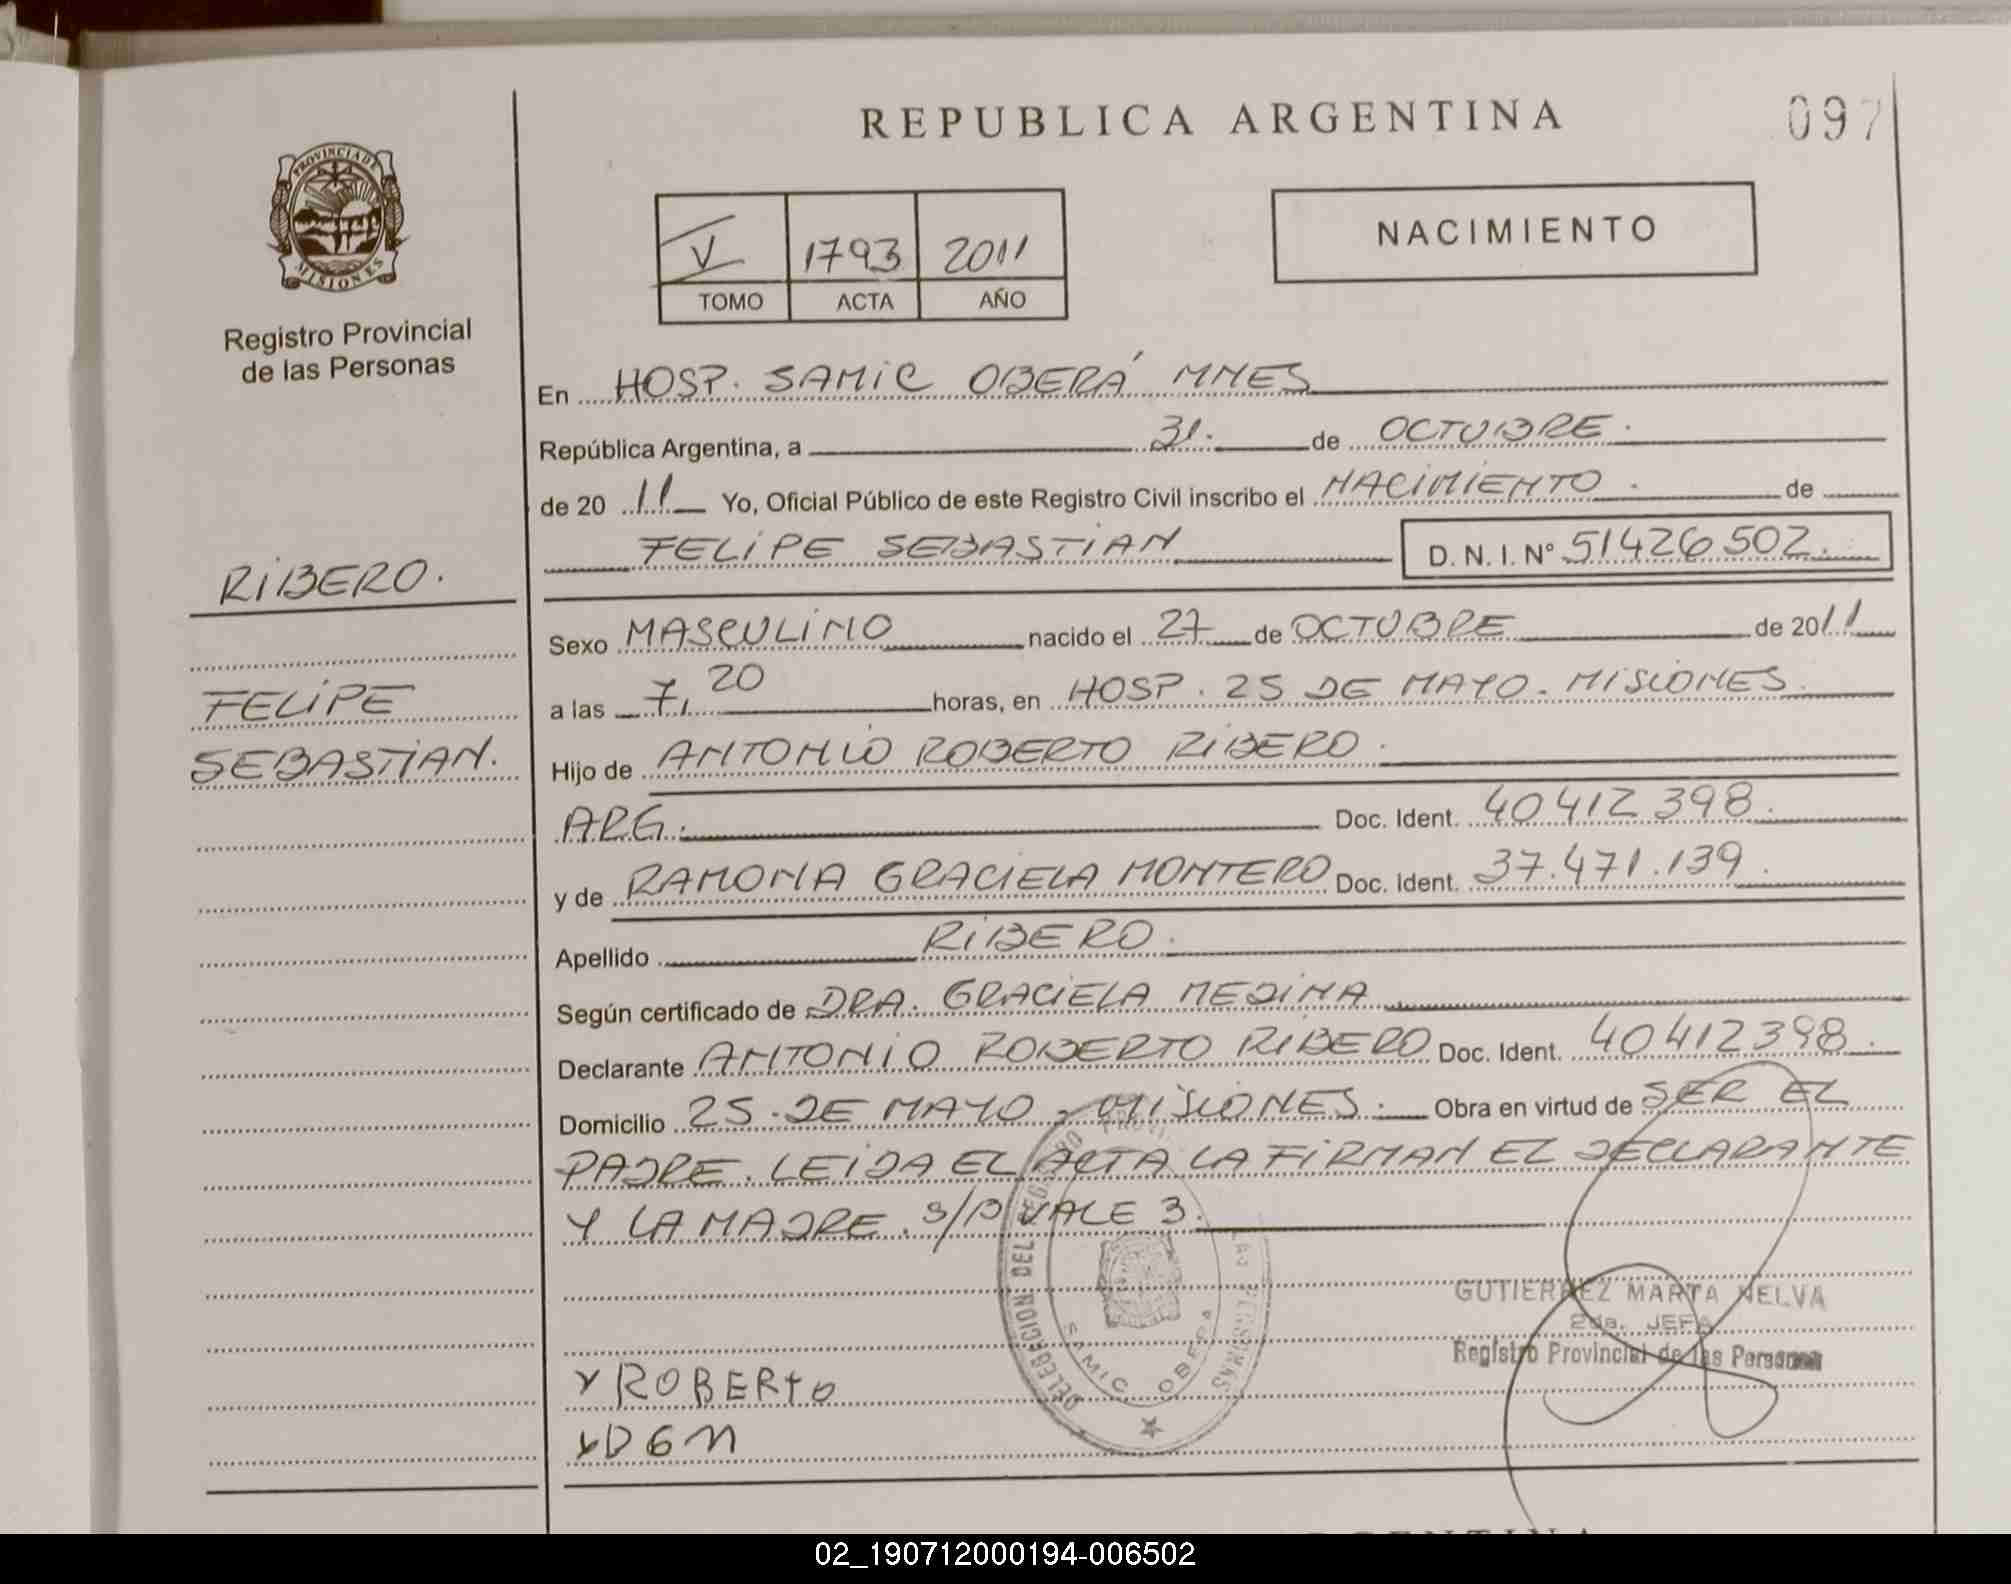 REPUBLICA ARGENTINA
097
PROVINCIA DE
MISIONES
Registro Provincial
de las Personas
V 1793 2011
TOMO ACTA AÑO
NACIMIENTO
En HOSP. SAMIC OBERÁ MNES
República Argentina, a 31. de OCTUBRE.
de 20 11 Yo, Oficial Público de este Registro Civil inscribo el NACIMIENTO. de
FELIPE SEBASTIAN D. N. I. N° 51426502.
RIBERO.
FELIPE
SEBASTIAN.
Sexo MASCULINO nacido el 27 de OCTUBRE de 2011
a las 7,20 horas, en HOSP. 25 DE MAYO. MISIONES.
Hijo de ANTONIO ROBERTO RIBERO.
ARG. Doc. Ident. 40412398.
y de RAMONA GRACIELA MONTERO Doc. Ident. 37.471.139.
Apellido RIBERO.
Según certificado de DRA. GRACIELA MEDINA
Declarante ANTONIO ROBERTO RIBERO Doc. Ident. 40412398.
Domicilio 25 DE MAYO, MISIONES. Obra en virtud de SER EL
PADRE. LEIDA EL ACTA LA FIRMAN EL DECLARANTE
Y LA MADRE. S/B VALE 3.
DELEGACION DEL REGISTRO PROV. LAS PERSONAS
SAMIC OBERA
GUTIERREZ MARTA NELVA
2da. JEFA
Registro Provincial de las Personas
ROBERTO
02_190712000194-006502